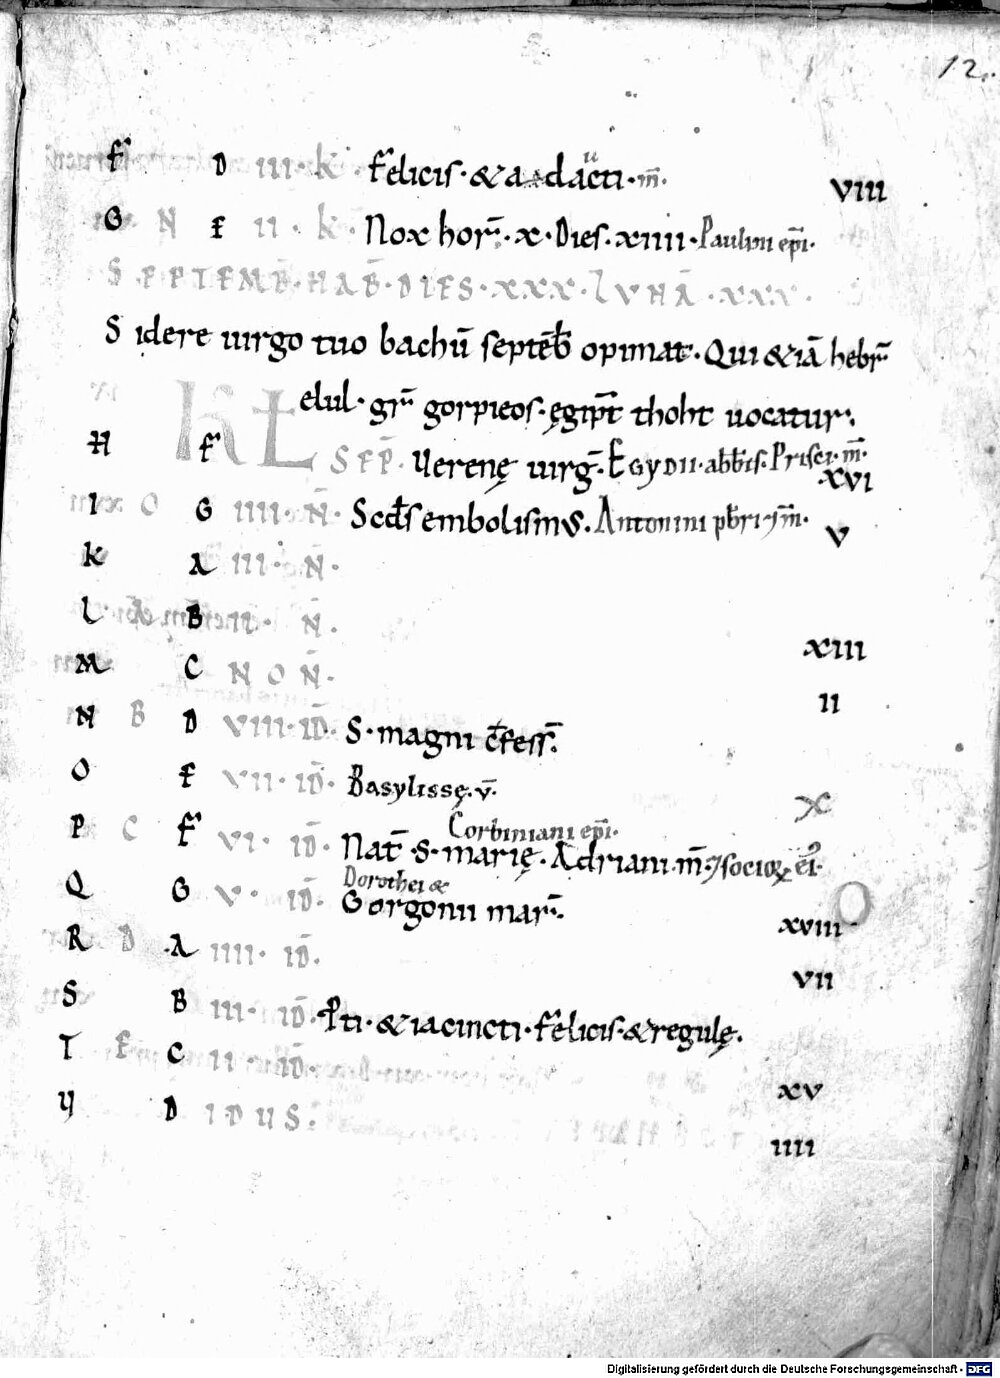 12.
F D III · K̄ Felicis · & adaucti · m̄.
VIII
G N E II · K̄ Nox hor̄ · x · Dies · xiiii · Paulini ep̄i ·
SEPTEMB̄ · HAB̄ · DIES · XXX · LVNĀ · XXX ·
Sidere uirgo tuo bachū septēb̄ opimat · Qui &iā hebr̄
elul · gr̄ gorpieos · ęgip̄t thoht uocatur ·
H F KL SEP̄ · Uerenę uirḡ · Egydii · abb̄is · Prisci · m̄ ·
XVI
I O G IIII · N̄ · Sc̄ds embolismus · Antonini pb̄ri · 7 m̄ ·
V
K A III · N̄ ·
L B II · N̄ ·
XIII
M C NON̄ ·
II
N B D VIII · ID̄ · S · magni c̄fess̄ ·
O E VII · ID̄ · Basylissę · v̄ ·
X
Corbiniani ep̄i ·
P C F VI · ID̄ · Nat̄ · S · marię · Adriani · m̄ · 7 socioꝝ ei᾽ ·
Dorothei &
Q G V · ID̄ · Gorgonii mar̄ ·
XVIII
R D A IIII · ID̄ ·
VII
S B III · ID̄ · P̄ti · & iacincti · Felicis · & regulę ·
T E C II · ID̄ ·
XV
V D IDUS ·
IIII
Digitalisierung gefördert durch die Deutsche Forschungsgemeinschaft - DFG